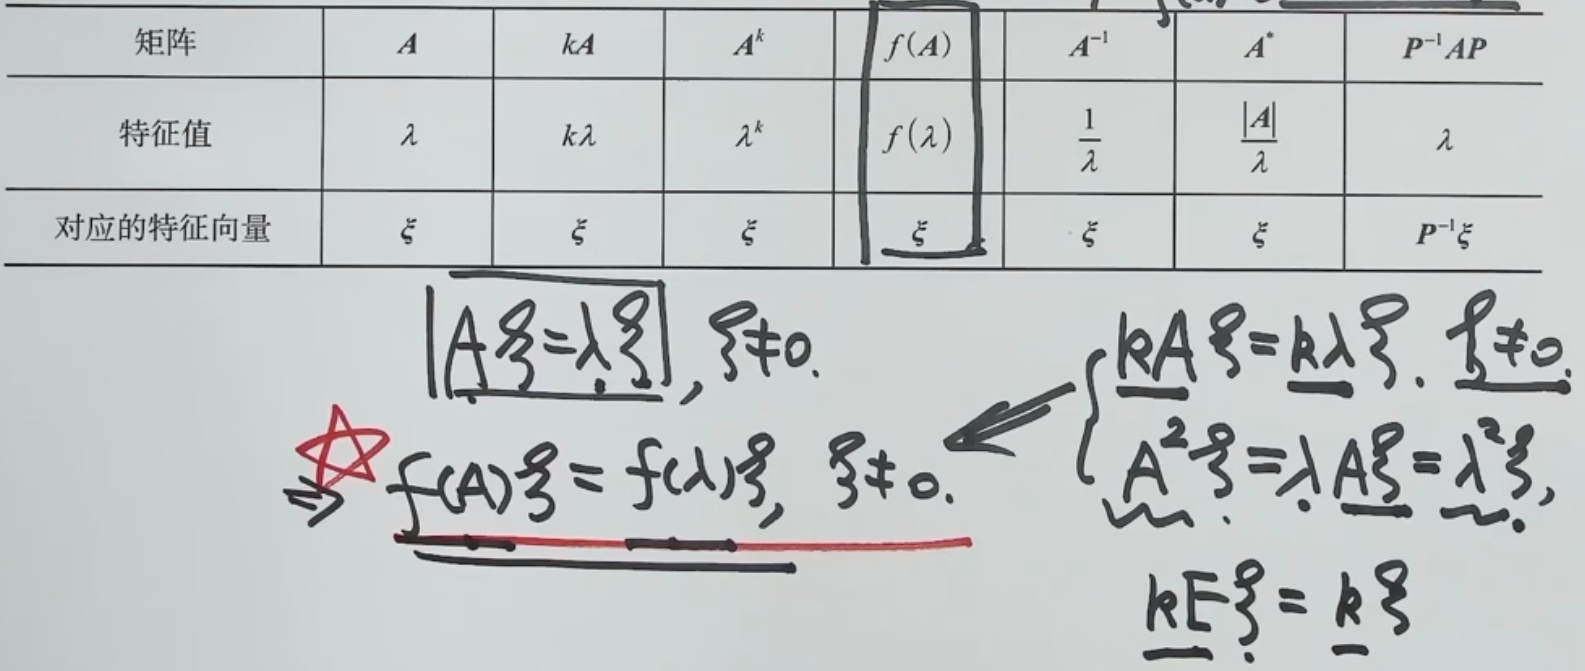 矩阵 A kA Aᵏ f(A) A⁻¹ A* P⁻¹AP
特征值 λ kλ λᵏ f(λ) 1/λ |A|/λ λ
对应的特征向量 ξ ξ ξ ξ ξ ξ P⁻¹ξ
Aξ=λξ, ξ≠0.
kAξ=kλξ. ξ≠0.
⇒ f(A)ξ=f(λ)ξ, ξ≠0.
A²ξ=λAξ=λ²ξ,
kEξ=kξ